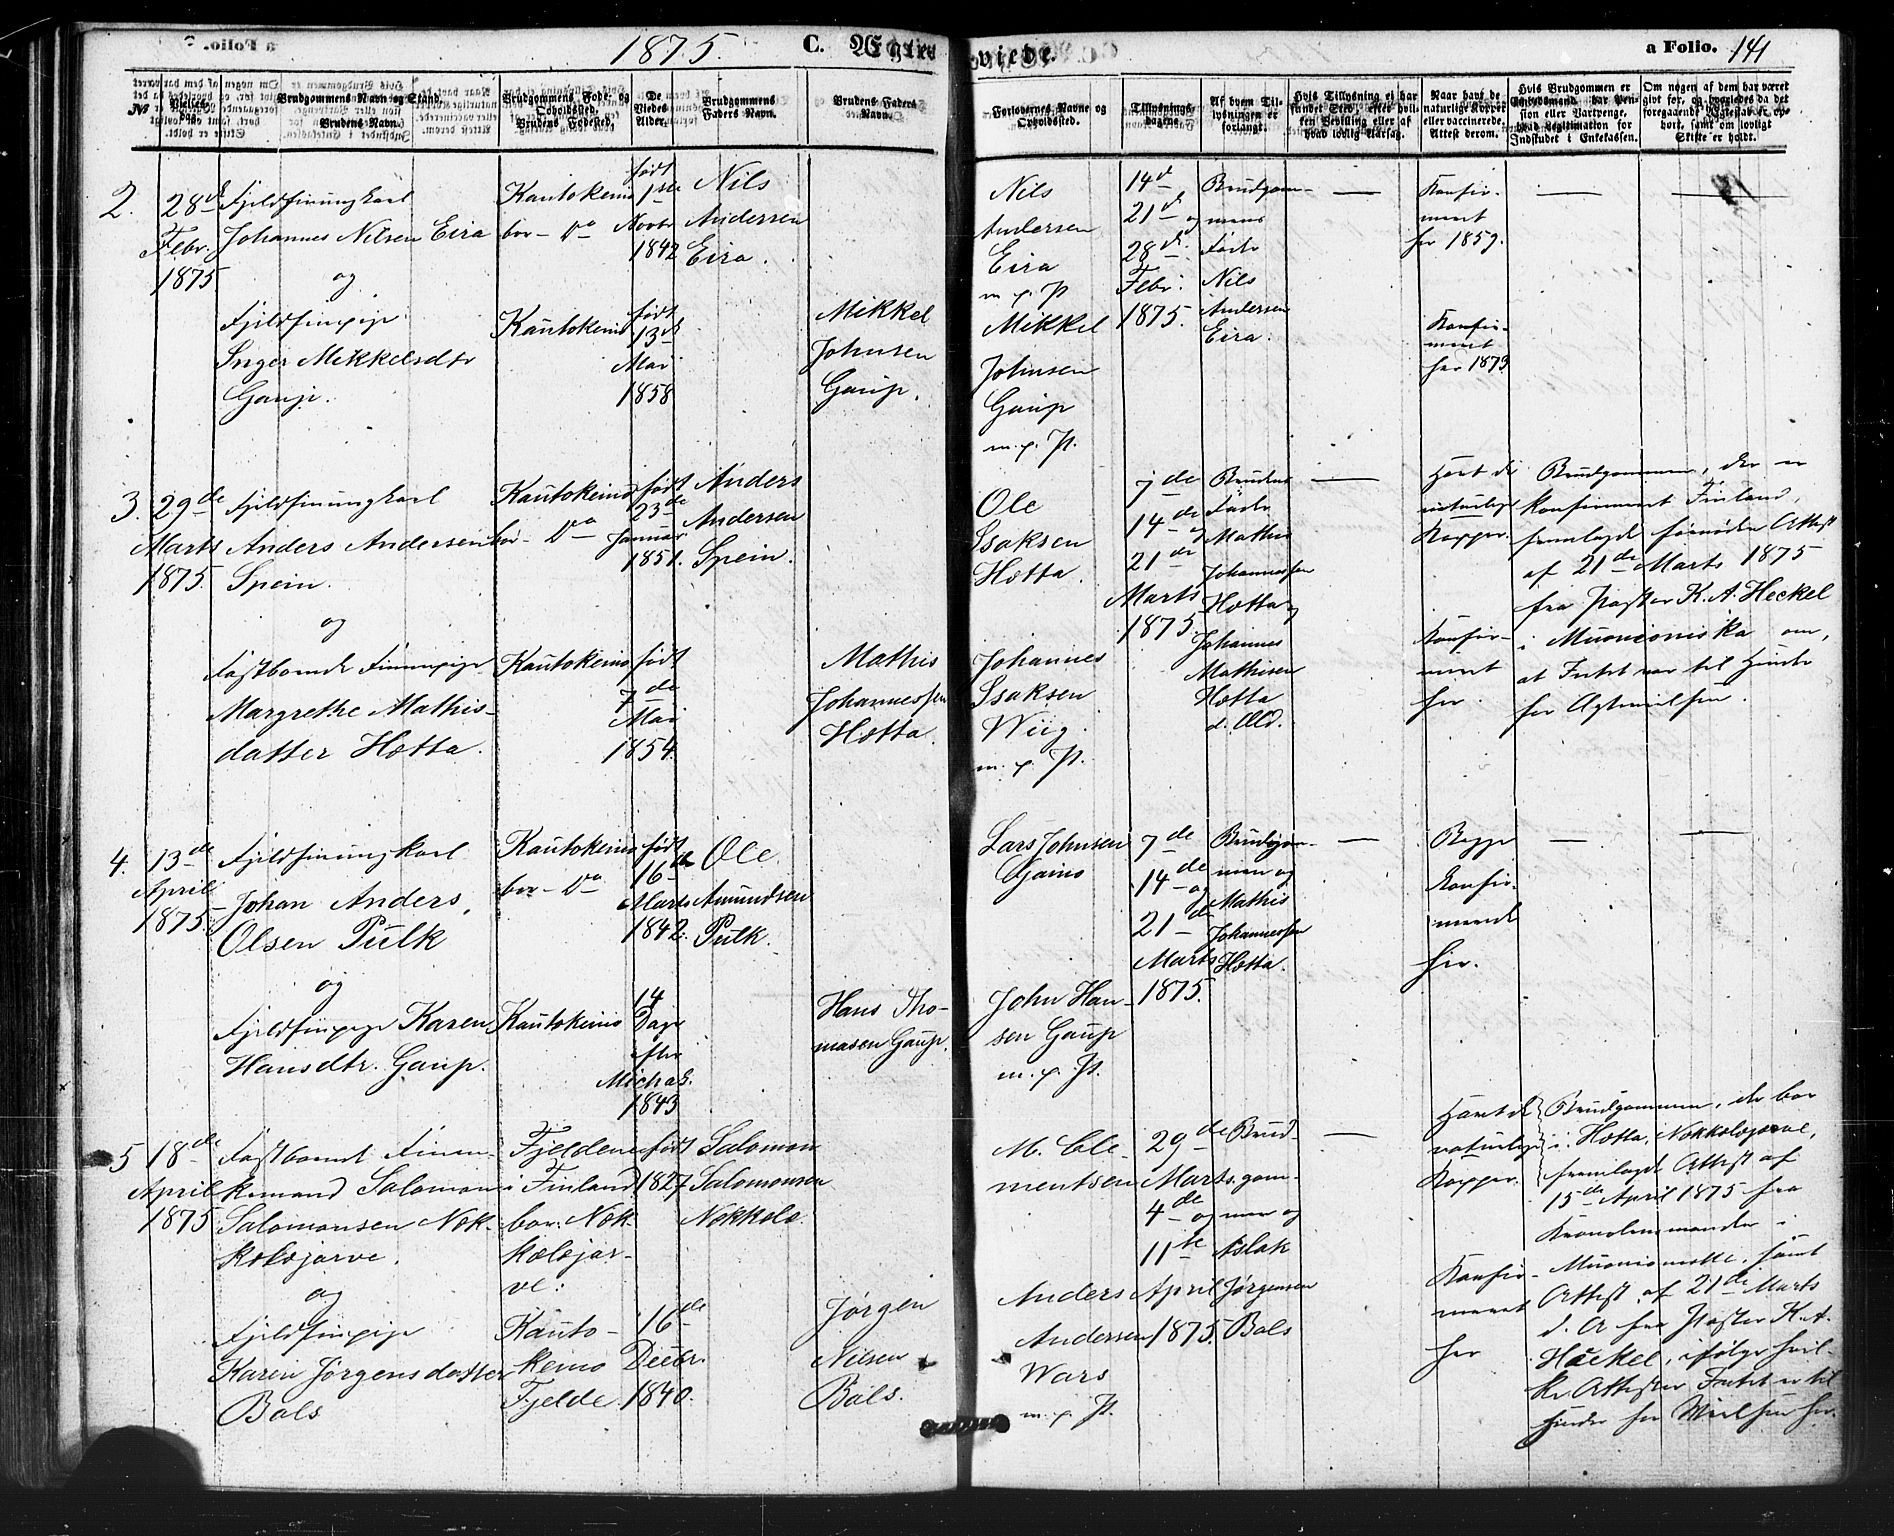 1875.
C. Ægtev
viede.
a Folio. 141
№
Vielses-
Dag.
Brudgommens Navn og Stand.
Brudens Navn.
Brudgommens Føde- og
Opholdssted.
Brudens Fødested.
De
Viedes
Alder.
Brudgommens
Faders Navn.
Brudens Faders
Navn.
Forlovernes Navne og
Opholdssted.
Tillysnings-
dagene.
Af hvem Til-
lysningen er
forlangt.
Hvis Tillysning ei har
fundet Sted, efter hvil-
ken Bevilling eller af
hvad lovlig Aarsag.
Naar havt de
naturlige Kopper
eller vaccinerede.
Attest derom.
Hvis Brudgommen er
har Pen-
sion eller Vartpenge,
hvad Legitimation for
Indskudet i Enkekassen.
Om nogen af dem har været
gift før, og hvorledes da det
foregaaende Ægteskab er op-
hørt, samt om lovligt
Skifte er holdt.
2.
28de
Febr.
1875
Fjeldfinungkarl
Johannes Nilsen Eira
og
Fjeldfinpige
Inger Mikkelsdtr
Gaup.
Kautokeino
bor - Do
Kautokeino
født
1ste
Novbr
1842
født
13de
Mai
1858
Nils
Andersen
Eira.
Mikkel
Johnsen
Gaup.
Nils
Andersen
Eira
m. p. P
Mikkel
Johnsen
Gaup
m. p. P.
14de
21de og
28de
Febr.
1875.
Brudgom-
mens
Fader
Nils
Andersen
Eira.
—
Konfir-
meret
her 1859.
Konfir-
meret
her 1873
—
—
3.
29de
Marts
1875.
Fjeldfinungkarl
Anders Andersen
Spein.
og
Fastboende Finnepige
Margrethe Mathis-
datter Hætta.
Kautokeino
bor - Do
Kautokeino
født
23de
Januar
1851.
født
7de
Mai
1854.
Anders
Andersen
Spein.
Mathis
Johannessen
Hætta.
Ole
Isaksen
Hætta.
Johannes
Isaksen
Wiig.
m. p. P.
7de
14de og
21de
Marts
1875
Brudens
Fader
Mathis
Johannessen
Hætta og
Johannes
Mathisen
Hætta
d. Æld.
—
Havt de
naturlige
Kopper.
Konfir-
meret
her.
Brudgommen, der er
konfirmeret Finland,
fremlagde fornøden Attest
af 21de Marts 1875
fra Pastor K. A. Heckel
i Muonioniska om,
at Intet var til Hinder
for Ægtevielsen.
4.
13de
April
1875
Fjeldfinungkarl
Johan Anders
Olsen Pulk
og
Fjeldfinpige Karen
Hansdtr. Gaup.
Kautokeino
bor - Do
Kautokeino
født
16de
Marts
1842.
14
Dage
før
Michas.
1843
Ole
Amundsen
Pulk.
Hans Tho-
masen Gaup.
Lars Johnsen
Gaino
John Han-
sen Gaup
m. p. P.
7de
14de og
21de
Marts
1875.
Brudgom-
men og
Mathis
Johannessen
Hætta.
—
Begge
konfir-
merede
her.
—
—
5
18de
April
1875
Fastboende Finne-
kemand Salomon
Salomonsen Nok-
kolajarve.
og
Fjeldfinpige
Karen Jørgensdatter
Bals
Fjeldene
i Finland
bor: Nok-
kolajar-
ve:
Kauto-
keino
Fjelde.
født
1827
16de
Decbr.
1840.
Salomon
Salomonsen
Nokkola.
Jørgen
Nilsen
Bals.
M. Cle-
mentsen
Anders
Andersen
Wars
m. p. P.
29de
Marts,
4de og
11te
April
1875.
Brud-
gom-
men og
Aslak
Jørgensen
Bals
—
Havt de
naturlige
Kopper.
Konfir-
meret
her
Brudgommen, der bor
i Hætta, Nokkolajarve,
fremlagde Attest af
15de April 1875 fra
Kronolensmanden i
Muoniomotte, samt
Attest af 21de Marts
d. A fra Pastor K. A.
Heckel, ifølge hvil-
ke Attester Intet er til
Hinder for Vielsen her.